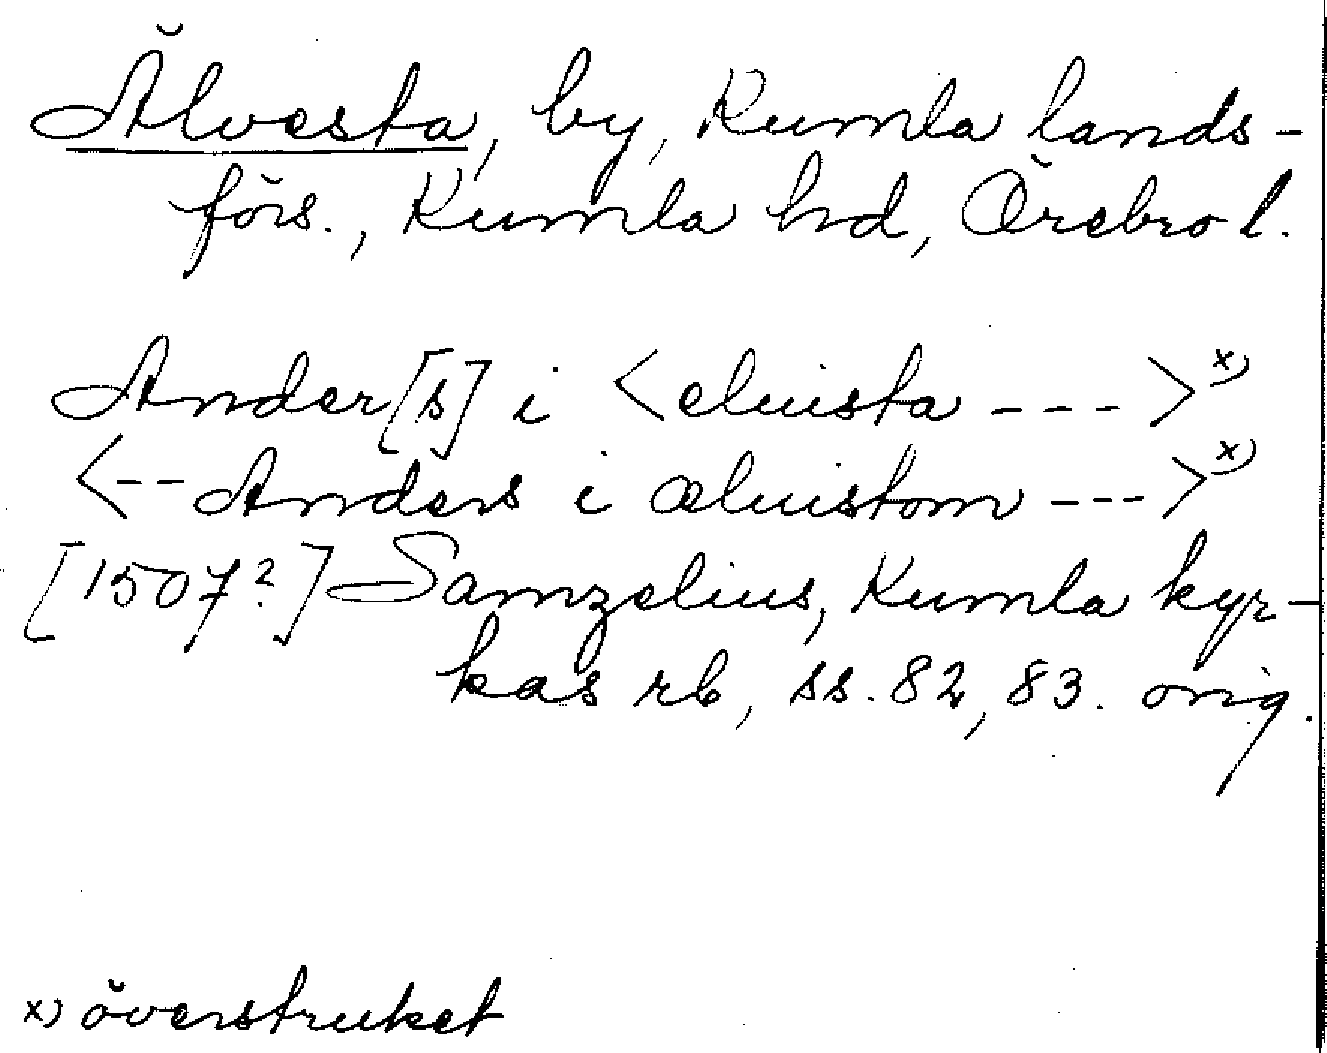 Älvesta, by, Kumla lands-
förs., Kumla hd, Örebro l.
Ander[s] i <eluista --->x)
<-- Anders i æluistom --->x)
[1507?] Samzelius, Kumla kyr-
kas rb, ss. 82, 83. orig.
x) överstruket